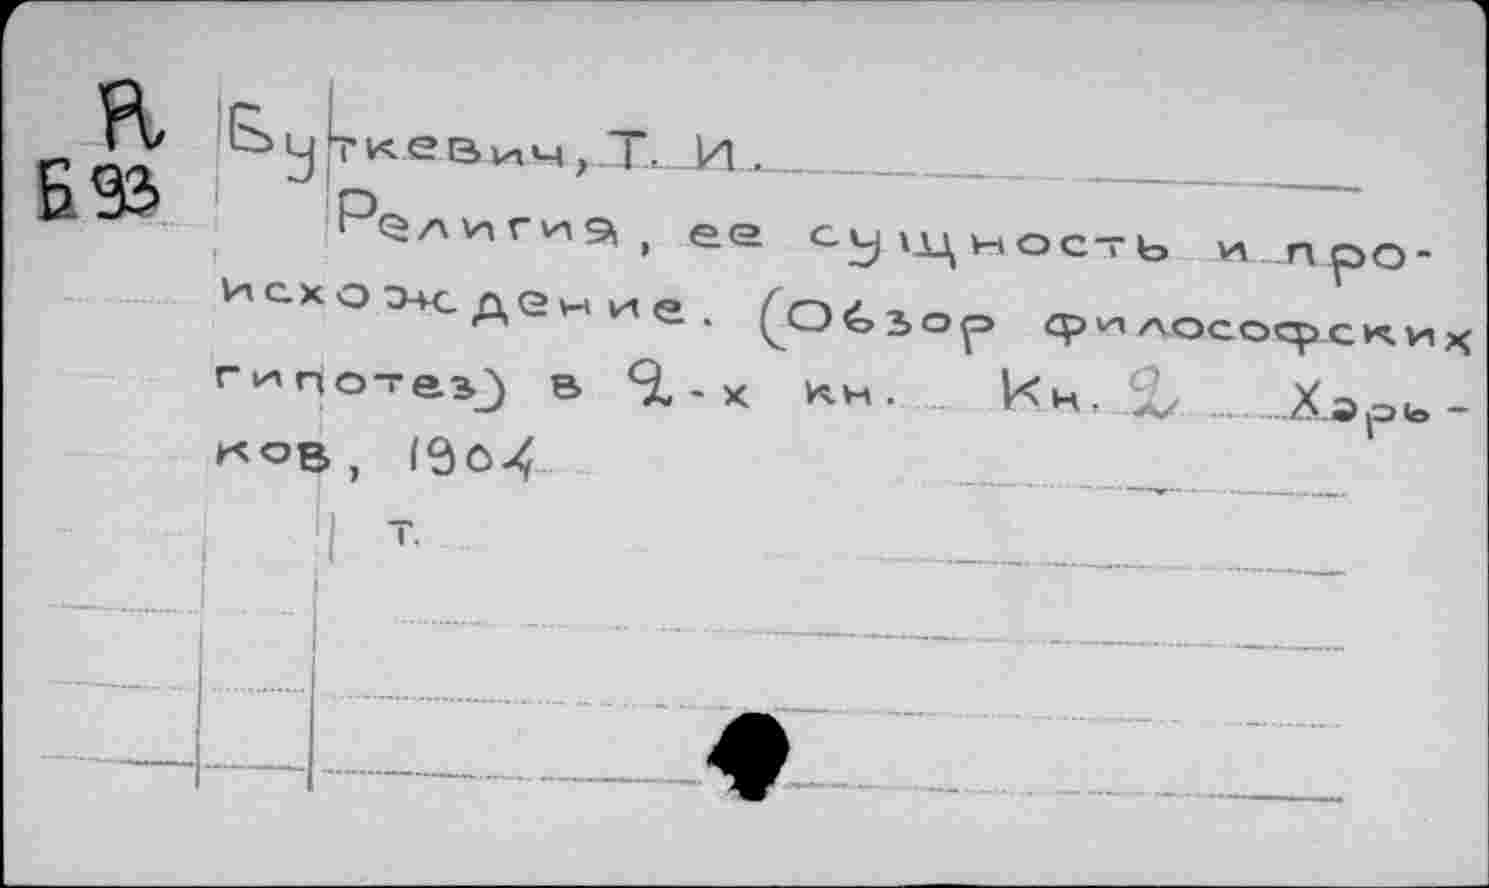 Я
Б93
Буткевич, Т. И.
Религия, ее сущность и про-
исхождение. (Обзор философских
гипотез) в 2-х кн. Кн. 2 Харь-
ков, 1904
т.